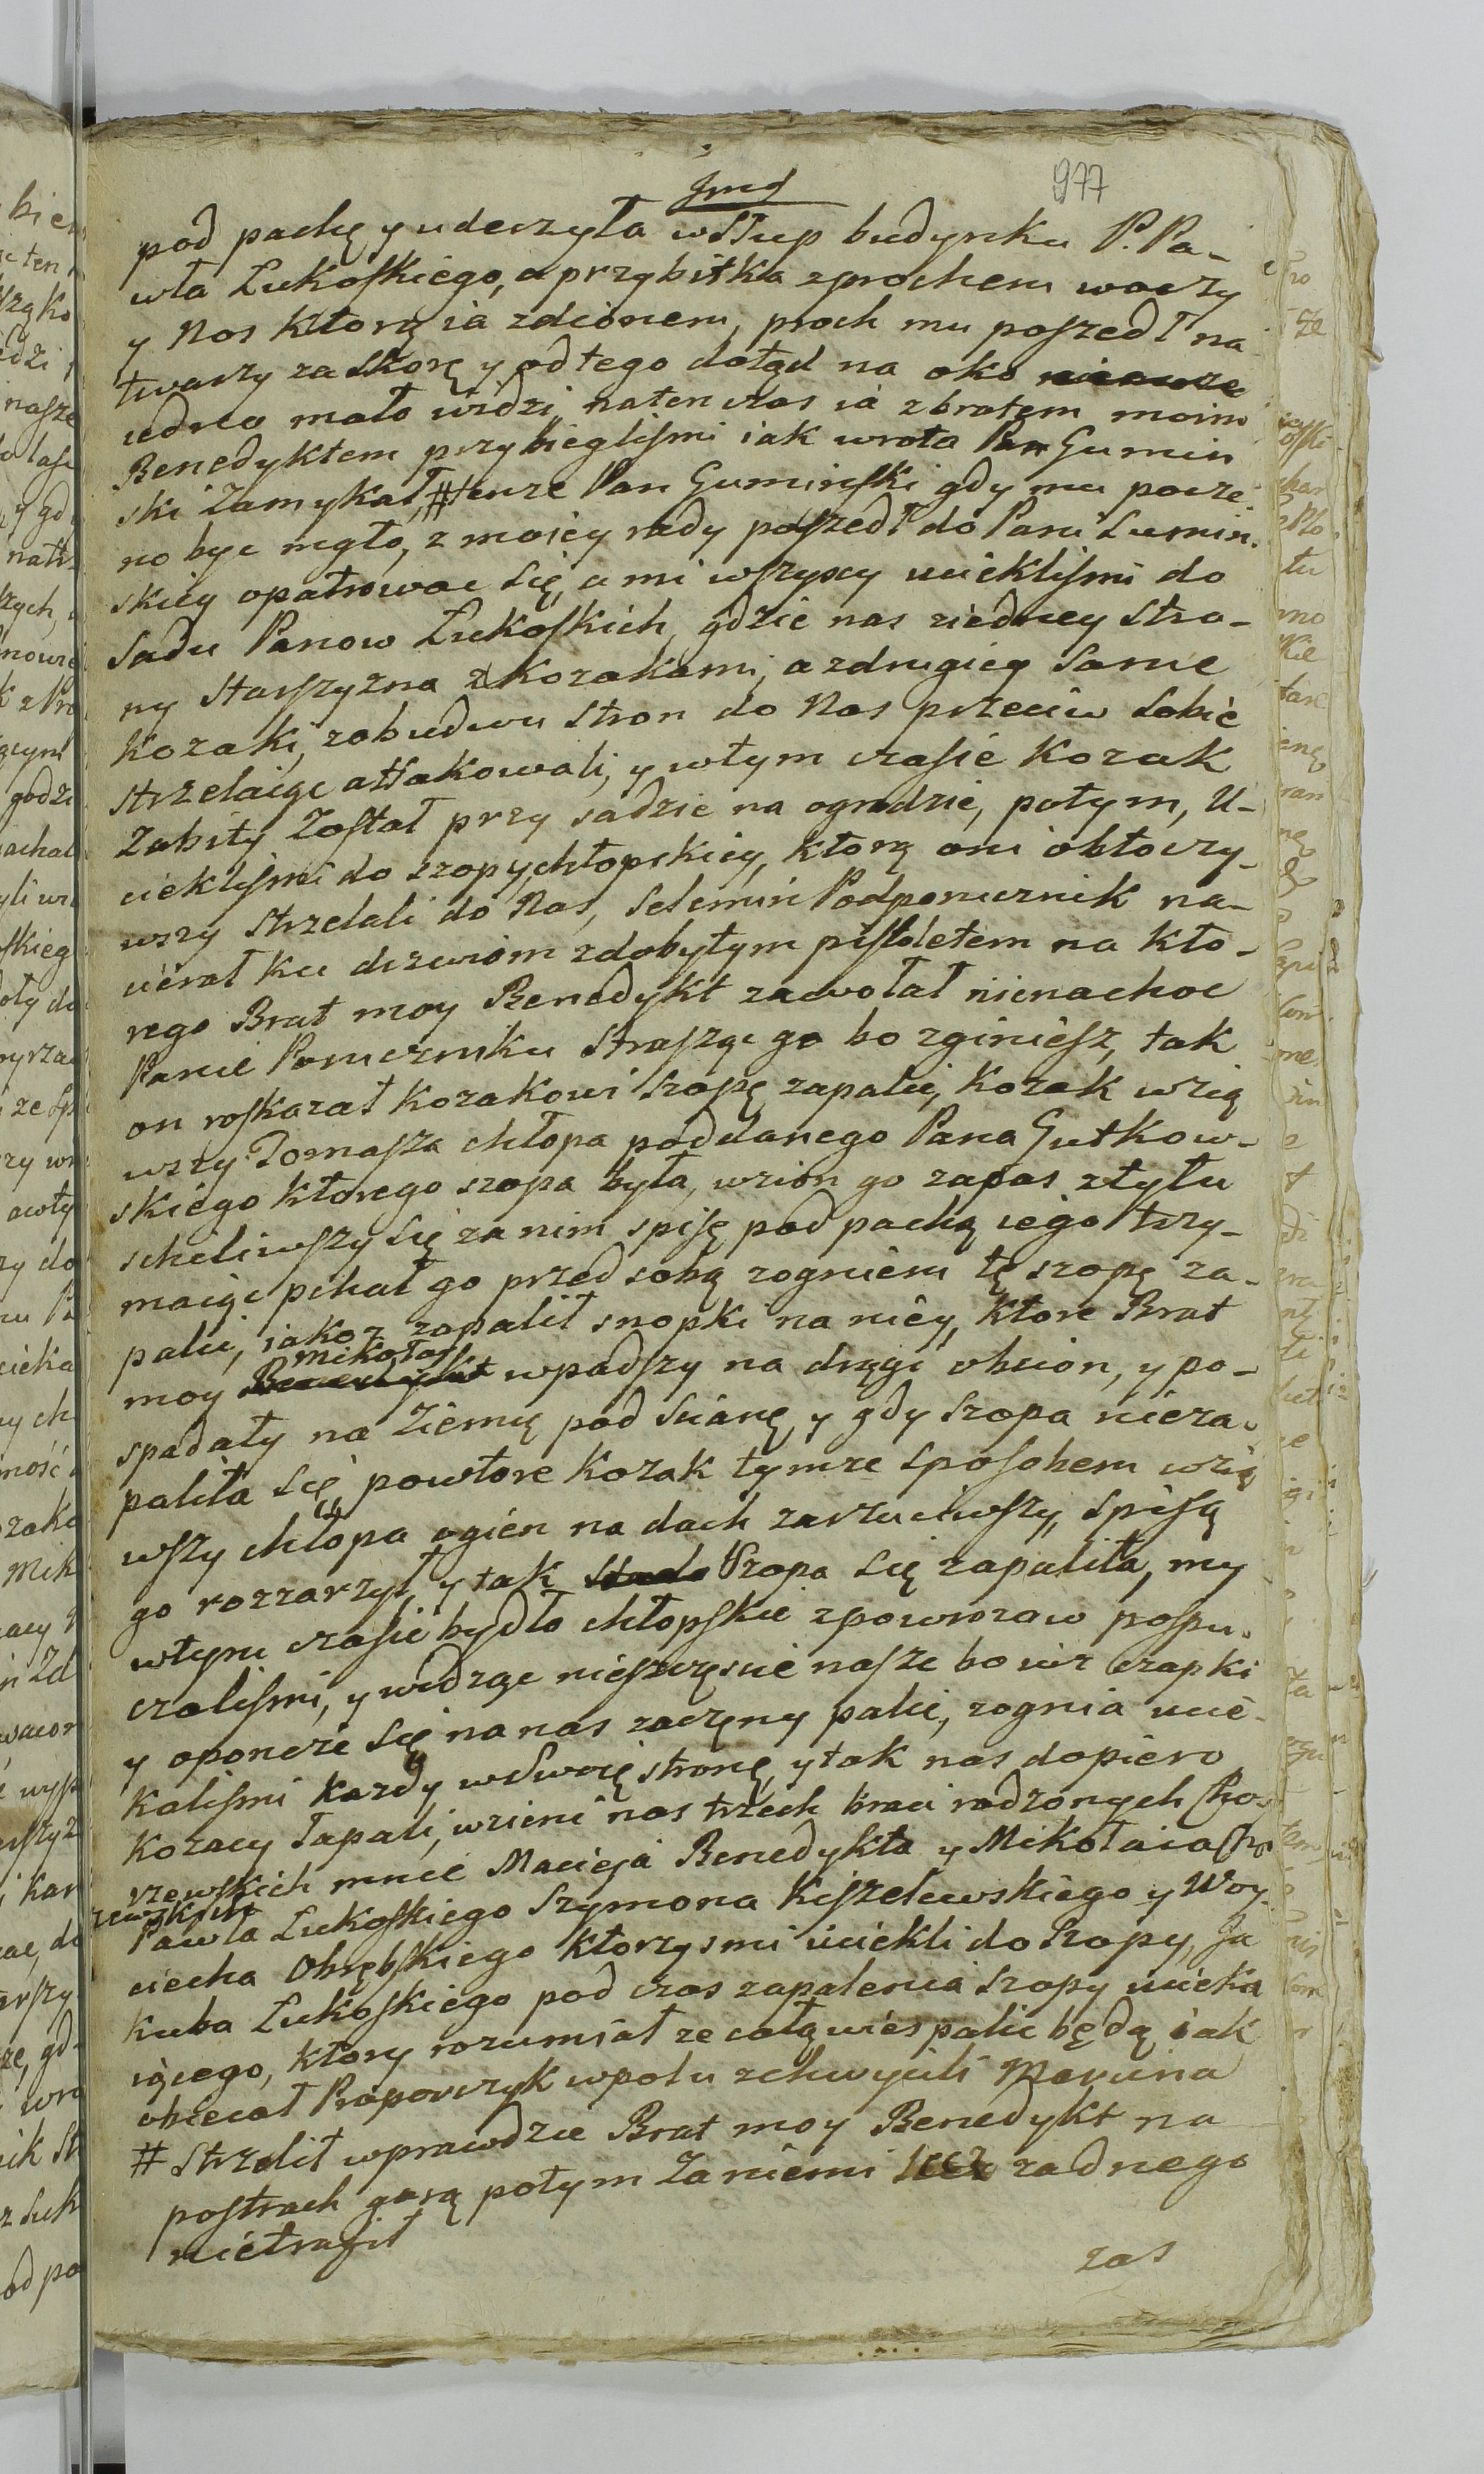 977
pod pachę y uderzyła w Słup budynku P. Pa-
wła Łukoskiego, a przybitka z prochem w oczy
y Nos ktorą ia zdiołem, proch mu poszedł na
twarzy za skorę y od tego dotąd na oko
iedno mało widzi, naten czas ia z bratem moim
Benedyktem przybieglismi iak wrota Pan Gumin
ski Zamykał, # tenze Pan Guminski gdy mu pocze-
no byc mgło, z moiey rady poszedł do Pani Lumin-
skiey opatrowac Się, a mi wszyscy uciekliśmi do
Sadu Panow Łukoskich, gdzie nas ziedney stro-
ny starszyzna z Kozakami, a zdrugiey Samie
Kozaki, zobudwu stron do Nas przeciw Sobie
strzelaiąc attakowali, y wtym czasie Kozak
Zabity Został przy sadzie na ogrodzie, potym, U-
ciekliśmi do szopy chłopskiey, ktorą oni obtoczy-
wszy strzelali do Nas, Selemin Podporucznik na-
cierał ku drzwiom zdobytym pistoletem na kto-
rego Brat moy Benedykt zawołał nienachoc
Panie Poruczniku Strasząc go bo zginiesz, tak
on roskazał Kozakowi Szopę zapalic, Kozak wzią
wszy Tomasza chłopa poddanego Pana Gutkow-
skiego ktorego szopa była, wzion go zapas ztyłu
schiliwszy Się za nim spisę pod pachą iego trzy-
maiąc pchał go przed sobą zogniem tę szopę za-
palic, iakoz zapalił snopki na niey, ktore Brat
moy Benedykt Mikołay wpadszy na drągi obcion, y po-
spadały na Ziemię pod Scianę y gdy Szopa nieza-
paliła Się, powtore Kozak tymze Sposobem wzią
wszy chłopa ogien na dach zarzuciwszy, Spisą
go rozzarzył, y tak Szopa Się zapaliła, my
wtym czasie bydło chłopskie zpowrozow pospu-
czaliśmi, y widząc nieszczęscie nasze bo iuz czapki
y oponcze Się na nas zaczęny palic, zognia ucie-
kaliśmi kazdy w Swoię stronę, y tak nas dopiero
Kozacy łapali, wzieni nas trzech braci rodzonych Cho-
rzewskich mnie Macieja Benedykta y Mikołaia Cho
rzewskich
Pawła Łukoskiego Szymona Kiszelewskiego y Woy-
ciecha Obrębskiego ktorzy smi uciekli do Szopy, Ja
kuba Łukoskiego pod czas zapalenia szopy ucieka
iącego, ktory rozumiał ze całą wies palic będą iak
obiecał Praporczyk w polu zchwycili Marcina
# Strzelił wprawdzie Brat moy Benedykt na
postrach gorą potym Za niemi lecz zadnego
nietrafił
zas